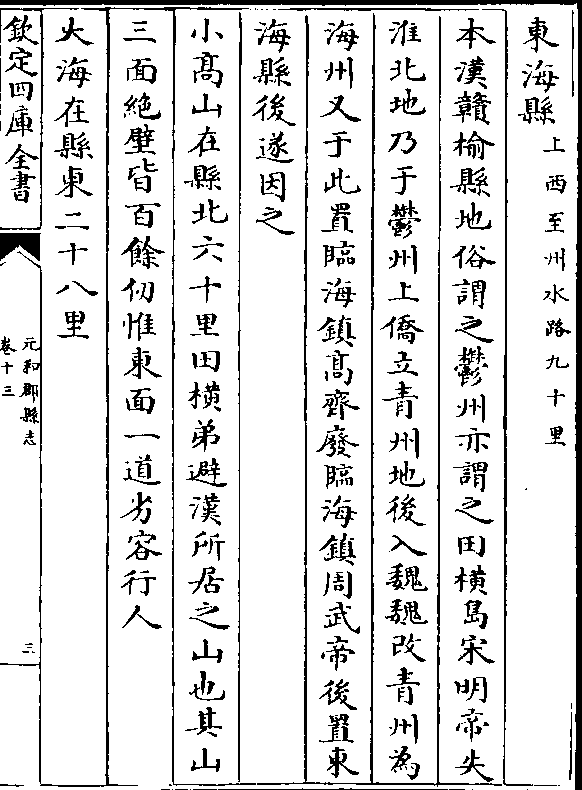 東海縣上西至州水路九十里
本漢贛榆縣地俗謂之鬱州亦謂之田橫島宋明帝失
淮北地乃于鬱州上僑立青州地後入魏魏改青州為
海州又于此置臨海鎮髙齊廢臨海鎮周武帝後置東
海縣後遂因之
小髙山在縣北六十里田橫弟避漢所居之山也其山
三面絶壁皆百餘仞惟東面一道劣容行人
大海在縣東二十八里
欽定四庫全書
元和郡縣志
卷十三
三